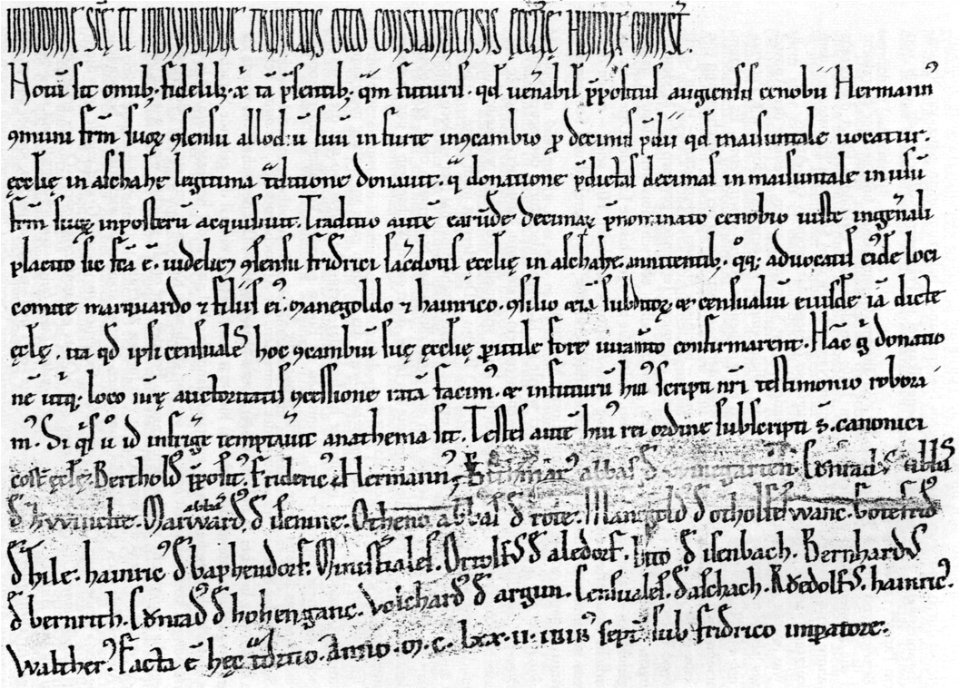 IN NOMINE SCĘ ET INDIVIDUE TRINITATIS OTTO CONSTANTIENSIS ĘCCLĘ HUMIL MINIST.
Notū sit omib; fidelib; xp̄i tā p̄sentib; q̄m futuris. qd̄ uen̄abil p̄positus augiensis cenobii Hermann᾿
ꝯmuni fr̄m suoꝝ ꝯsensu allodiū suū in furte in ꝯcambio p̄ decimis p̄dii qd̄ maisuntale uocatur.
ęcclię in aschahe legitima t᷑ditione donauit. q̄ donatione p̄dictas decimas in maisuntale in usū
fr̄m suoꝝ in posterū acquisiuit. Traditio autē earūdē decimaꝝ p̄nominato cenobio iuste in gen̄ali
placito sic fc̄a ē. uidelicꝫ ꝯsensu fridrici sac̄dotis ęcclię in aschahe annuentib; q̊q; aduocatis ei᾿dē loci
comite marquardo ⁊ filiis ei᾿ manegoldo ⁊ hainrico. ꝯsilio etiā subditoꝝ & censualiū eiusdē iā dictę
ęcclę, ita qd̄ ipsi censuales hoc ꝯcambiū suę ęcclię p̄utile fore iuram̄to confirmarent. Hāc g᷑ donatio
nē utriq; loco iurę auctoritatis ꝯcessione ratā facim᾿. & in futurū hui᾿ scripti nr̄i testimonio robora
m᾿. Si q̇s ů id infrigᷓe temptauit anathema sit. Testes autē hui᾿ rei ordine subscripti s̄. canonici
cost̄. ęccłę. Berthold᾿ p̄posit᾿. Frideric᾿ Hermann᾿ abbas đ Cůnrad᾿ abbas
đ hwinclte. Marward᾿ abba đ isenine. Otheno abbas đ rote. Manigold᾿ đ otholfeswanc. Gotefrid᾿
đ hile. hainric᾿ đ baphendorf. Minist᷑iales. Ortolf᾿ đ aledorf. Itto đ isenbach. Bernhard᾿
đ bernrith. Cůnrad᾿ đ hohenganc. Volchard᾿ đ argun. Censuales. đ aschach. Růdolf᾿. hainric᾿.
Walther᾿. Facta ē hęc t᷑ditio. Anno. m. c. lxx. ii. sept̄. sub fridrico imp̄atore.